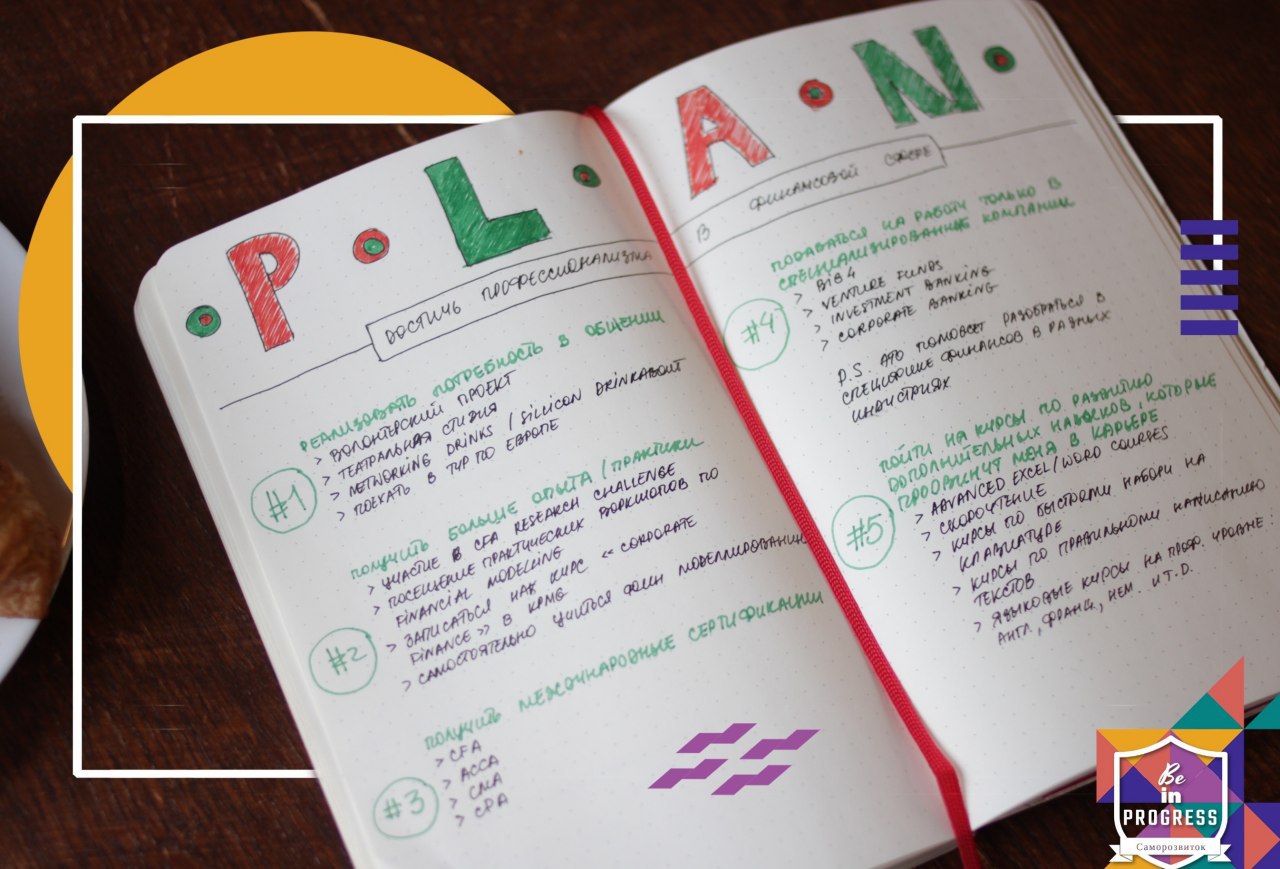 P L A N
ДОСТИЧЬ ПРОФЕССИОНАЛИЗМА
РЕАЛИЗОВАТЬ ПОТРЕБНОСТЬ В ОБЩЕНИИ
#1
> ВОЛОНТЕРСКИЙ ПРОЕКТ
> ТЕАТРАЛЬНАЯ СТУДИЯ
> NETWORKING DRINKS / SILICON DRINKABOUT
> ПОЕХАТЬ В ТУР ПО ЕВРОПЕ
ПОЛУЧИТЬ БОЛЬШЕ ОПЫТА / ПРАКТИКИ
#2
> УЧАСТИЕ В CFA RESEARCH CHALLENGE
> ПОСЕЩЕНИЕ ПРАКТИЧЕСКИХ ВОРКШОПОВ ПО
FINANCIAL MODELLING
> ЗАПИСАТЬСЯ НА КУРС «CORPORATE
FINANCE» В KPMG
> САМОСТОЯТЕЛЬНО УЧИТЬСЯ ФИН МОДЕЛЛИРОВАНИЮ
ПОЛУЧИТЬ МЕЖДУНАРОДНЫЕ СЕРТИФИКАЦИИ
#3
> CFA
> ACCA
> CMA
> CPA
В ФИНАНСОВОЙ СФЕРЕ
ПОДАВАТЬСЯ НА РАБОТУ ТОЛЬКО В
СПЕЦИАЛИЗИРОВАННЫЕ КОМПАНИИ
#4
> BIG 4
> VENTURE FUNDS
> INVESTMENT BANKING
> CORPORATE BANKING
P.S. ЭТО ПОМОЖЕТ РАЗОБРАТЬСЯ В
СПЕЦИФИКЕ ФИНАНСОВ В РАЗНЫХ
ИНДУСТРИЯХ
ПОЙТИ НА КУРСЫ ПО РАЗВИТИЮ
ДОПОЛНИТЕЛЬНЫХ НАВЫКОВ, КОТОРЫЕ
ПРОДВИНУТ МЕНЯ В КАРЬЕРЕ
#5
> ADVANCED EXCEL/WORD COURSES
> СКОРОЧТЕНИЕ
> КУРСЫ ПО БЫСТРОМУ НАБОРУ НА
КЛАВИАТУРЕ
> КУРСЫ ПО ПРАВИЛЬНОМУ НАПИСАНИЮ
ТЕКСТОВ
> ЯЗЫКОВЫЕ КУРСЫ НА ПРОФ. УРОВНЕ:
АНГЛ., ФРАНЦ., НЕМ. И Т.Д.
Be
in
PROGRESS
Саморозвиток